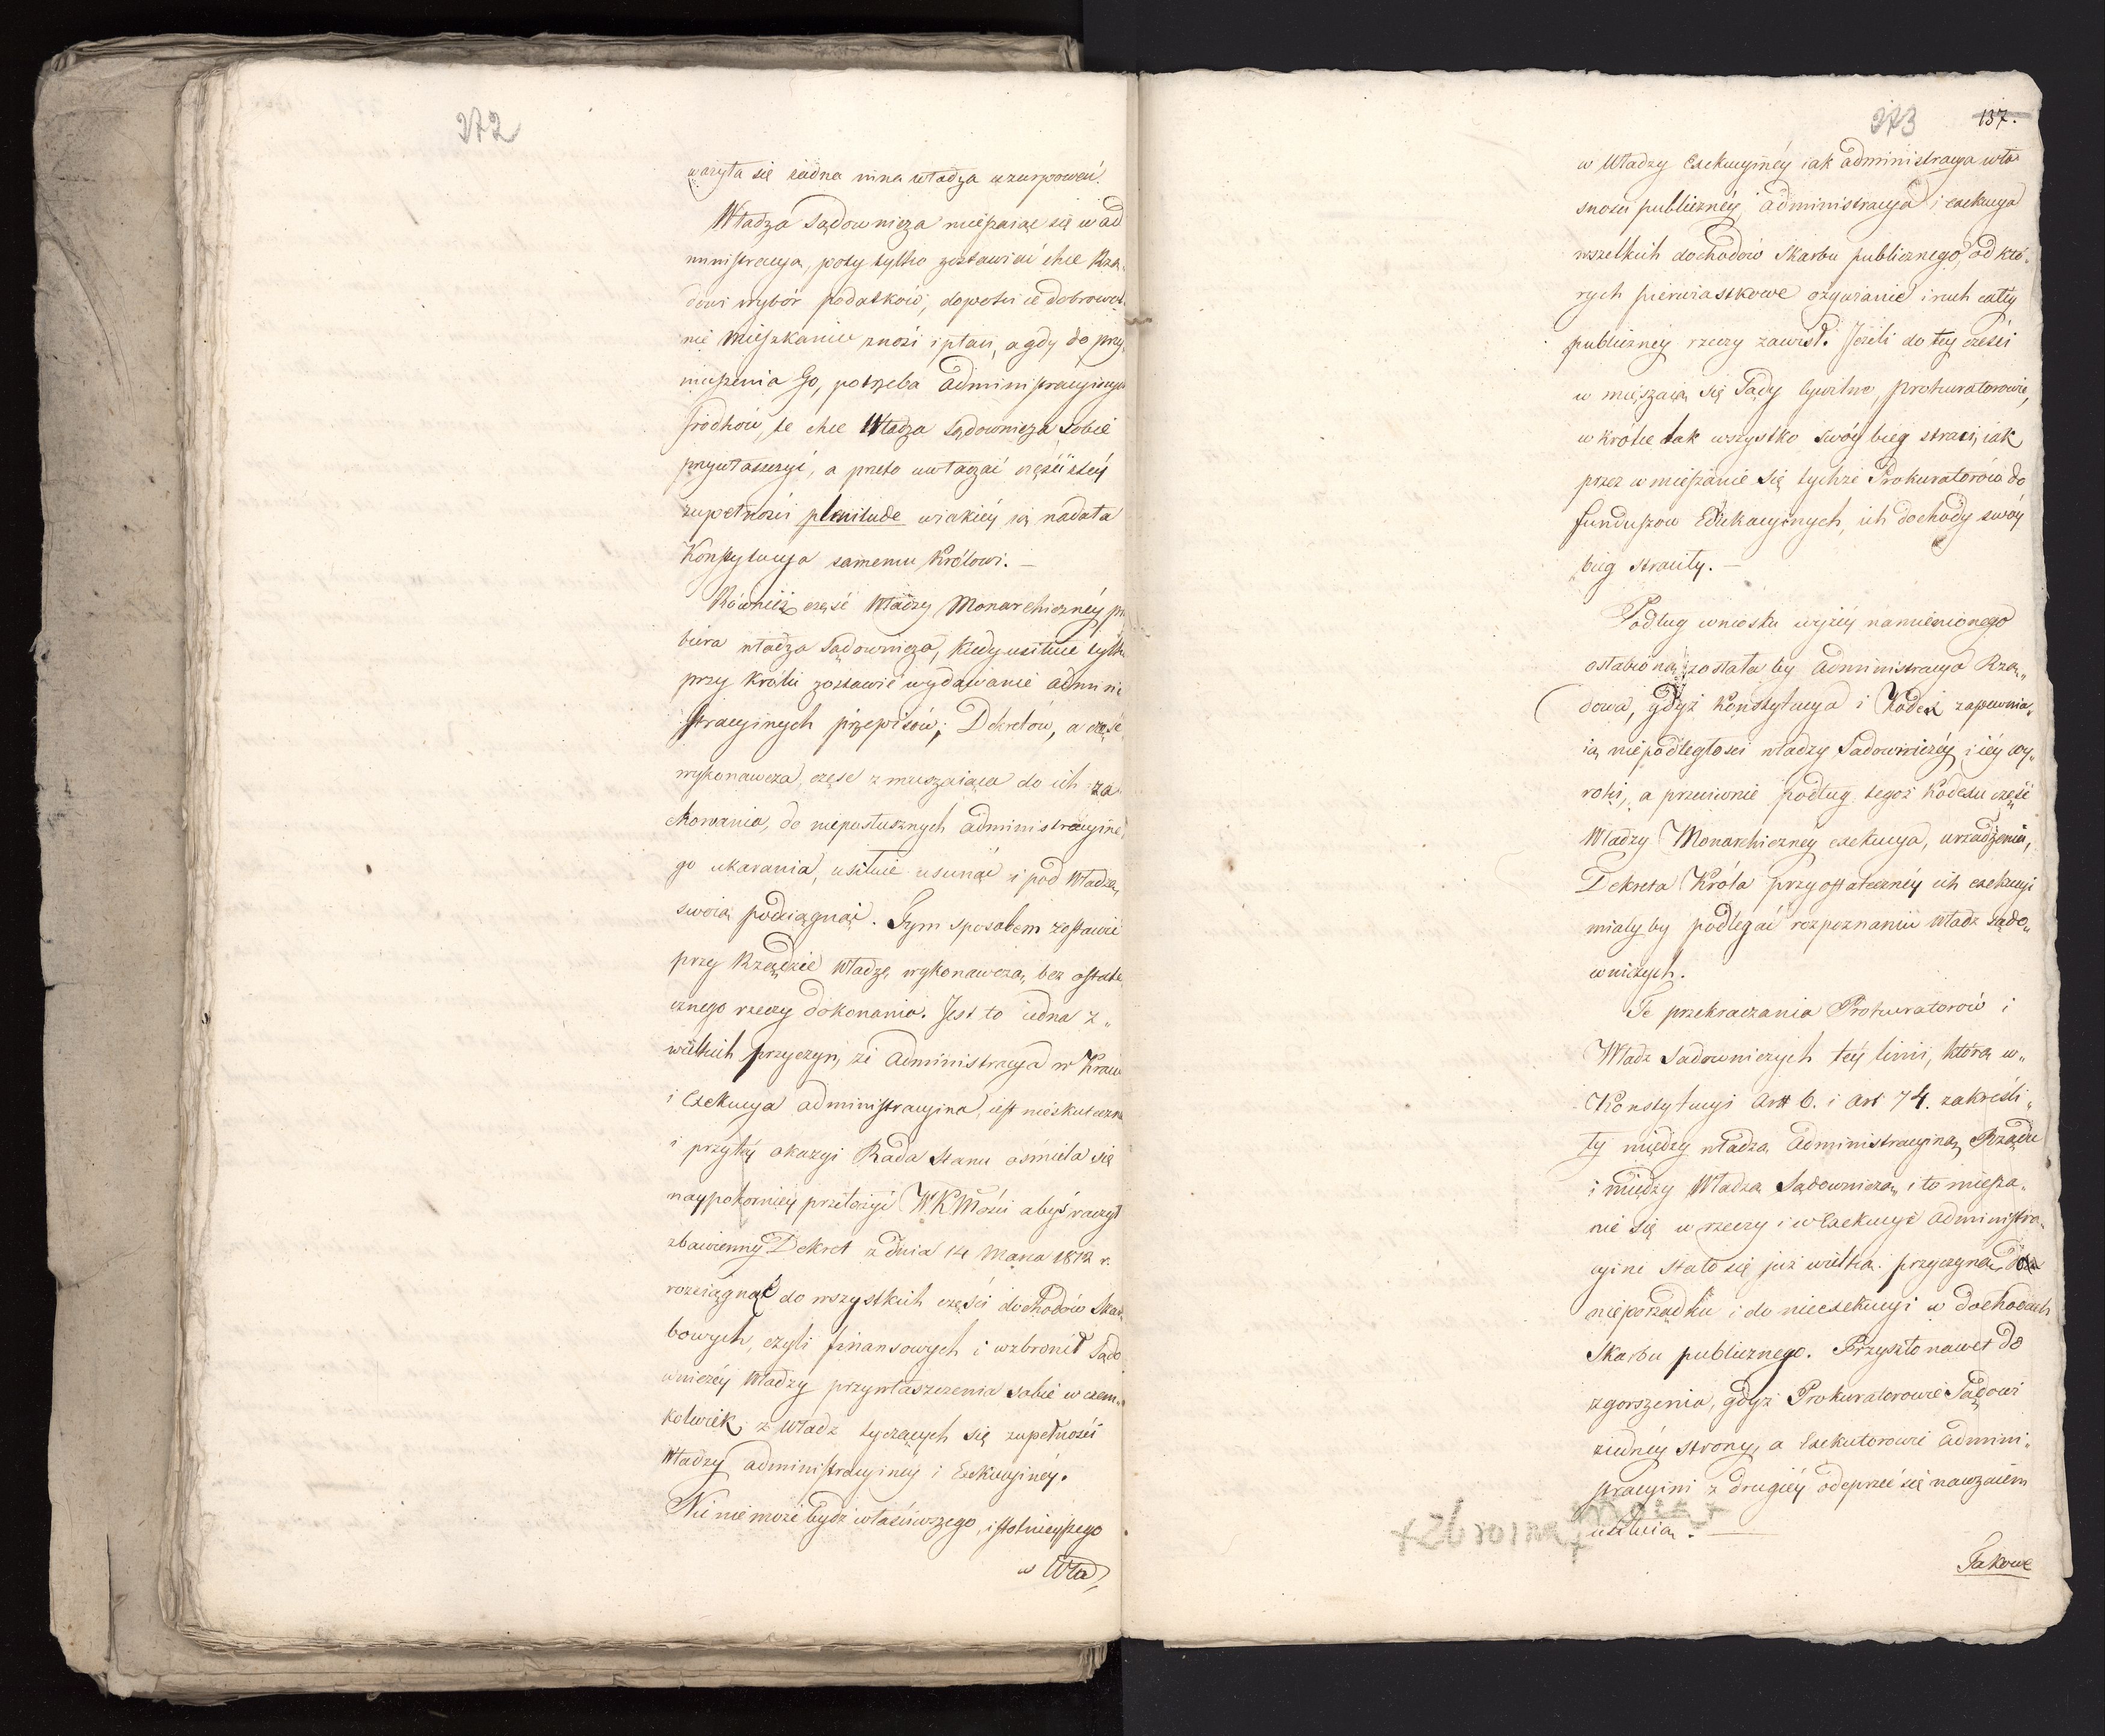 272
ważyła się żadna inna władza uzurpować.
Władza Sądownicza mieszaiąc się w ad
ministracyą, poty tylko zostawiać chce Rzą„
dowi wybór podatków, dopóki ie dobrowol„
nie Mieszkaniec znosi i płaci, a gdy do przy„
muszenia Go, potrzeba administracyinych
środków, te chce Władza Sądownicza sobie
przywłaszczyć, a przeto uwłaczać części tey
zupełności plenitude w iakiéy ią nadała
Konstytucya samemu Królowi. —
Również część Władzy Monarchicznéy przy
biera władza Sądownicza, kiedy usiłuie tylko
przy Królu zostawić wydawanie admini
stracyinych przepisów, Dekretów, a część
wykonawczą, część zmuszaiącą do ich za
chowania, do nieposłusznych administracyine
go ukarania, usiłuie usunąć i pod władzę
swoią podciągnąć. Tym sposobem zostawić
przy Rządzie władzę wykonawczą, bez ostate
cznego rzeczy dokonania. Jest to iedna z„
wielkich przyczyn, że administracya w Kraiu
i Exekucya administracyina, iest nieskuteczna
i przy téy okazyi Rada Stanu ośmiela się
naypokorniéy przełożyć W. K. Mości abyś raczył
zbawienny Dekret z dnia 14 Marca 1812 r.
rozciągnąć do wszystkich części dochodów Skar„
bowych, czyli finansowych i wzbronił Sądo
wniczéy Władzy przywłaszczenia sobie w czem„
kolwiek z władz tyczących się zupełności
Władzy administracyinéy i Exekucyinéy.
Nic nie może bydź właściwszego, istotnieyszego
w Wła„
273 137.
w Władzy Exekucyinéy iak administracya wła„
sności publicznéy, administracya i exekucya
wszelkich dochodów Skarbu publicznego, od któ„
rych pierwiastkowe ożywianie i ruch cały
publicznéy rzeczy zawisł. Jeżeli do tey części
w mieszaią się Sądy Cywilne, Prokuratorowie,
w krótce tak wszystko swóy bieg straci, iak
przez w mieszanie się tychże Prokuratorów do
funduszów Edukacyinych, ich dochody swóy
bieg straciły. —
Podług wniosku wyżéy namienionego
osłabioną została by administracya Rzą„
dowa, gdyż Konstytucya i Kodex zapewnia„
ią niepodległość władzy Sądowniczéy i iéy wy„
roki, a przeciwnie podług tegoż Kodexu część
Władzy Monarchicznéy exekucya, urządzenia,
Dekreta Króla przy ostatecznéy ich exekucyi
miały by podlegać rozpoznaniu władz sądo„
wniczych.
Te przekraczania Prokuratorów i
Władz Sadowniczych téy linii, którą w„
Konstytucyi Art 6. i Art 74. zakreśli„
ły między władzą administracyiną Rządu
i między Władzą Sądowniczą, i to miesza„
nie się w rzeczy i w Exekucye administra„
cyine stało się już wielką przyczyną do
nieporządku i do nieexekucyi w dochodach
Skarbu publicznego. Przyszło nawet do
zgorszenia, gdyż Prokuratorowie Sądowi
z iednéy strony, a Exekutorowie admini„
stracyini z drugiéy odeprzeć się nawzaiem
+ zbroiną mocą +
usiłuią. —
Takowe